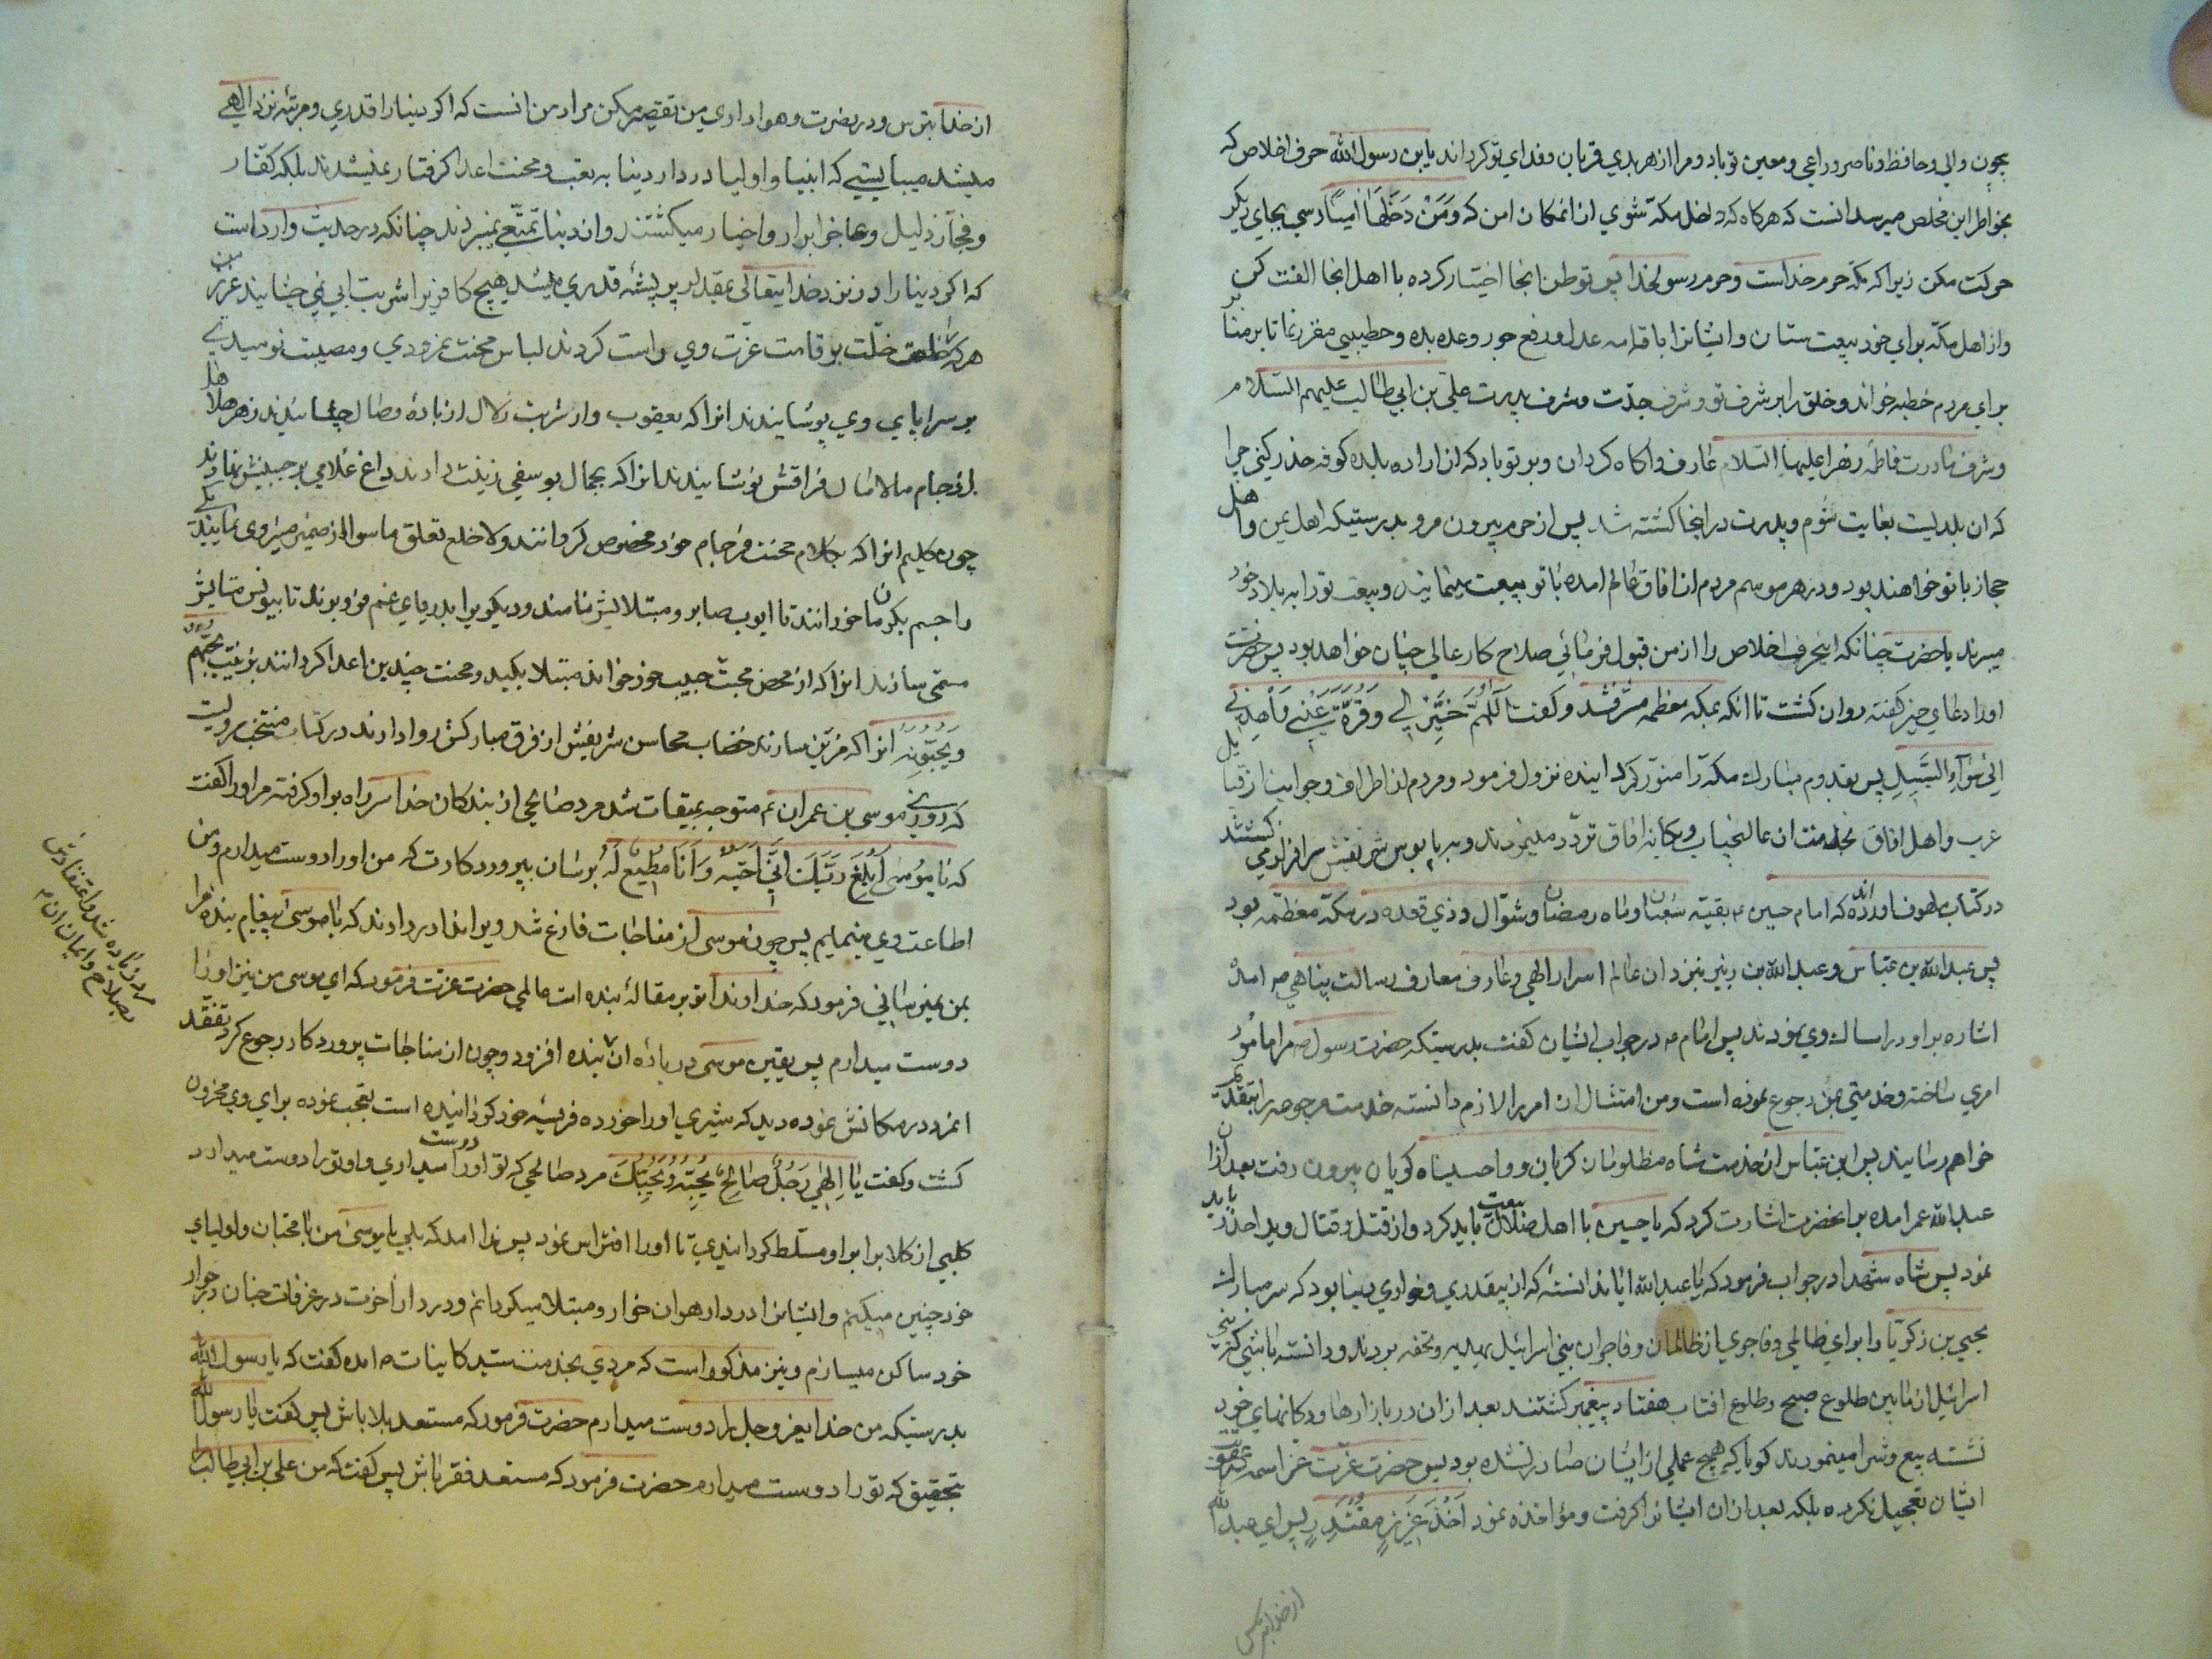 بیچون والی و حافظ و ناصر و راعی و معین تو باد و مرا از هر بدی قربان و فدای تو کرداند یابن رسول الله حرف اخلاص که
بخواطر این مخلص میرسد انست که هرکاه که داخل مکه شوی از انمکان امن که وَمَنْ دَخَلَهَا امِنًا رسی بجای دیکر
حرکت مکن زیرا که مکه حرم خداست و حرم رسولخدا پس توطن انجا اختیار کرده با اهل انجا الفت کن
و از اهل مکه برای خود بیعت ستان و ایشانرا باقامه عدل و رفع جور وعده بده و خطیبی مقرر نما تا بر منابر
برای مردم خطبه خواند و خلق را بر شرف تو و شرف جدّت و شرف پدرت علی بن ابی طالب علیهم السّلام
و شرف مادرت فاطمه زهرا علیها السّلام عارف و اکاه کردان و بر تو باد که از اراده بلده کوفه حذر کنی چرا
که ان بلدیست بغایت شوم و پدرت در انجا کشته شد پس از حرم بیرون مرو بدرستیکه اهل یمن و اهل
حجاز با تو خواهند بود و در هر موسم مردم از افاق عالم امده با تو بیعت مینمایند و بیعت تو را به بلاد خود
میبرند یا حضرت چنانکه اینحرف اخلاص را از من قبول فرمائی صلاح کار عالی چنان خواهد بود پس حضرت
او را دعای خیر کفته روان کشت تا انکه بمکه معظمه مشرّف شد و کفت اَللّهُمَّ خَیِّر لی وَ قُرَّتْ عَیْنی وَاهْدِنی
اِلی سَوَآءِ السَّبیلِ پس بقدوم مبارک مکه را منوّر کردانیده نزول فرمود و مردم از اطراف و جوانب از قبایل
عرب و اهل افاق بخدمت ان عالیجناب و یکانه افاق تردّد مینمودند و به پابوس شریفش سرافراز می کشتند
در کتاب ملهوف اورده اند که امام حسین ع بقیه شعبان و ماه رمضان و شوّال و ذی قعده در مکّه معظّمه بود
پس عبدالله بن عبّاس و عبدالله بن زبیر بنزد ان عالم اسرار الهی و عارف معارف رسالت پناهی ص امده
اشاره بر او در امساک وی نمودند پس امام ع در جواب ایشان کفت بدرستیکه حضرت رسول ص مرا مامُور
امری ساخته و خدمتی بمن رجوع نموده است و من امتثال ان امر را لازم دانسته خدمت مرجوعه را بتقدیم
خواهم رسانید پس ابن عبّاس از خدمت شاه مظلومان کریان و واحسیناه کویان بیرون رفت بعد از ان
عبدالله عمر امده بر انحضرت اشارت کرد که یا حسین با اهل ضلال بیعت باید کرد و از قتل و قتال ویرا حذر باید
نمود پس شاه شهدا در جواب فرمود که یا عبدالله ایا ندانستهٔ که از بیقدری و خواری دنیا بود که سر مبارک
یحیی بن زکریّا را برای ظالمی و فاجری از ظالمان و فاجران بنی اسرائیل بهدیه و تحفه بردند و دانسته باشی که بنی
اسرائیل از مابین طلوع صبح و طلوع افتاب هفتاد پیغمبر کشتند بعد از ان در بازارها و دکانهای خود
نشسته بیع و شرا مینمودند کویا که هیچ عملی از ایشان صادر نشده بود پس حضرت عزّت عزّ اسمه
ایشان تعجیل نکرده بلکه بعد از ان ایشانرا کرفت و مؤاخذه نمود اَخْذَ عَزِیزٍ مُقْتَدِرٍ پس ای عبدالله
از خدا بترس
از خدا بترس و در نصرت و هواداری من تقصیر مکن مراد من انست که اکر دنیا را قدری و مرتبهٔ نزد الهی
میشد میبایستی که انبیا و اولیا در دار دنیا به تعب و محنت اعدا کرفتار نمیشدند بلکه کفّار
و فجّار ذلیل و عاجز ابرار و اخیار میکشتند و از دنیا تمتّعی نمیبردند چنانکه در حدیث وارد است
که اکر دنیا را در نزد خدایتعالی بمقدار پر پشهٔ قدری میشد هیچ کافر را شربت ابی نمی چشانید عزیز من
هر که خلعت خلّت بر قامت عزّت وی راست کردند لباس محنت نمرودی و مصیبت نومیدی
بر سراپای وی پوشانیدند انرا که یعقوب وار شربت زلال از بادهٔ وصال چشانیدند زهر هلاهل
از جام مالامال فراقش نوشانیدند انرا که بجمال یوسفی زینت دادند داغ غلامی بر جبینش نهادند
چون کلیم انرا که بکلام محنت فرجام خود مخصوص کردانند ولا خلع تعلق ماسوا از ضمیر منیر وی نمایند یکی
را جسم بکرمان خورانند تا ایوب صابر و مبتلایش نامند و دیکریرا بدریای غم فرو برند تا بیونس متّقیش
مسمّی سازند انرا که از محض محبّت حبیب خود خوانند مبتلا بکید و محنت چندین اعدا کردانند بزینت یُحِبُّهُم
وَیُحِبُّونَهُ انرا که مزیّن سازند خضاب محاسن شریفش از فرق مبارکش روا دارند در کتاب منتخب مرویست
که روزی موسی بن عمران ع متوجه بمیقات شد مرد صالحی از بندکان خدا سر راه بر او کرفته مر او را کفت
که یا مُوسی اَبْلِغْ رَبَّکَ اَنّی اُحِبُّهُ وَ اَنَا مُطِیعٌ لَهُ برسان بپروردکارت که من او را دوست میدارم و من
اطاعت وی مینمایم پس چون موسی از مناجات فارغ شد ویرا ندا در دادند که یا موسی پیغام بندهٔ مرا
بمن نمیرسانی فرمود که خداوندا تو بر مقالهٔ بنده ات عالمی حضرت عزّت فرمود که ای موسی من نیز او را
دوست میدارم پس یقین موسی در بارهٔ ان بنده افزود و چون از مناجات پروردکار رجوع کرد تفقّد
انمرد در مکانش نموده دید که شیری او را خورده فریسه خود کردانیده است تعجب نموده برای وی محزون
کشت و کفت یا اِلهی رَجُلٌ صالِحٌ یُحِبُّهُ وَیُحِبُّکَ مرد صالحی که تو او را دوست میداری و او تو را دوست میدارد
کلبی از کلاب را بر او مسلّط کردانیدی تا او را افتراس نمود پس ندا امد که بلی یا موسی من با محبّان و اولیای
خود چنین میکنم و ایشانرا در دار هوان خوار و مبتلا میکردانم و در دار اخرت در غرفات جنان در جوار
خود ساکن میسازم و نیز مذکور است که مردی بخدمت سیّد کاینات ص امده کفت که یا رسول الله
بدرستیکه من خدای عزّ و جلّ را دوست میدارم حضرت فرمود که مستعد بلا باش پس کفت یا رسول الله
بتحقیق که تو را دوست میدارم حضرت فرمود که مستعد فقر باش پس کفت که من علی بن ابی طالب را